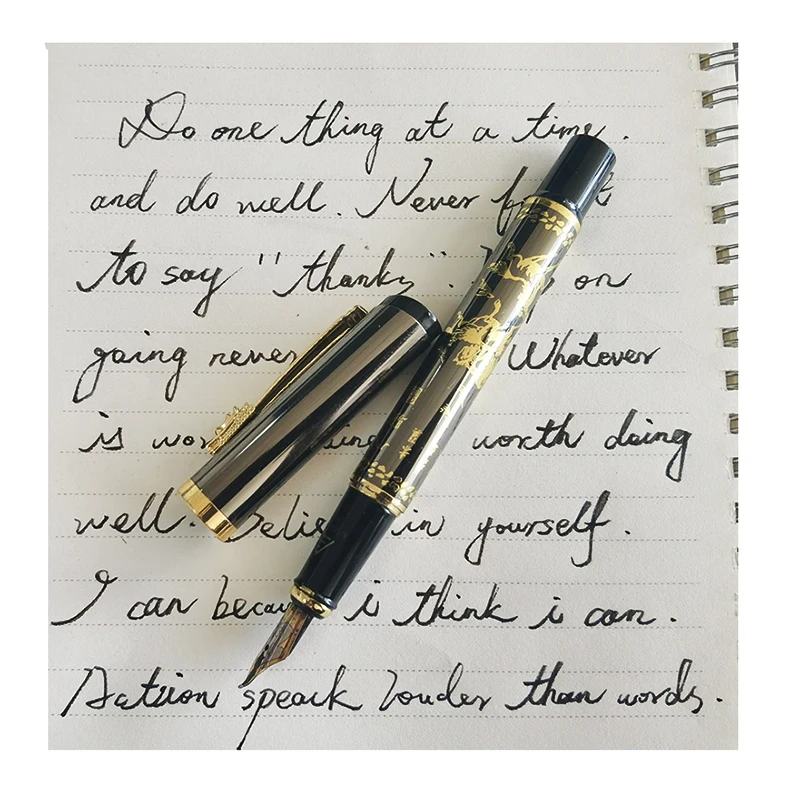 Do one thing at a time.
and do well. Never
to say "thanks". on
going never Whatever
is worth doing
well. in yourself.
I can i think i can.
Action speack louder than words.